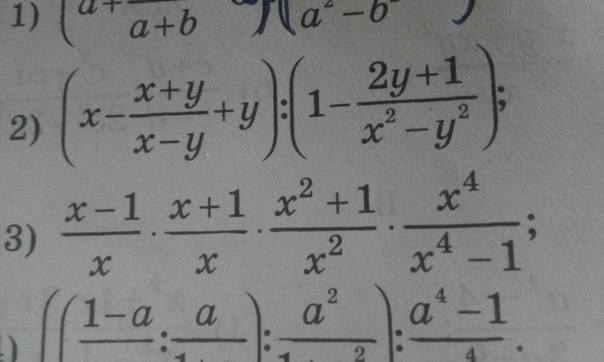 1) (a+ / a+b )(( a² − b
2) (x − (x+y)/(x−y) + y) : (1 − (2y+1)/(x² − y²));
3) (x−1)/x · (x+1)/x · (x²+1)/x² · x⁴/(x⁴ − 1);
(((1−a)/ : a/1+ ) : a²/1+ ² ) : (a⁴ − 1)/ ⁴ .